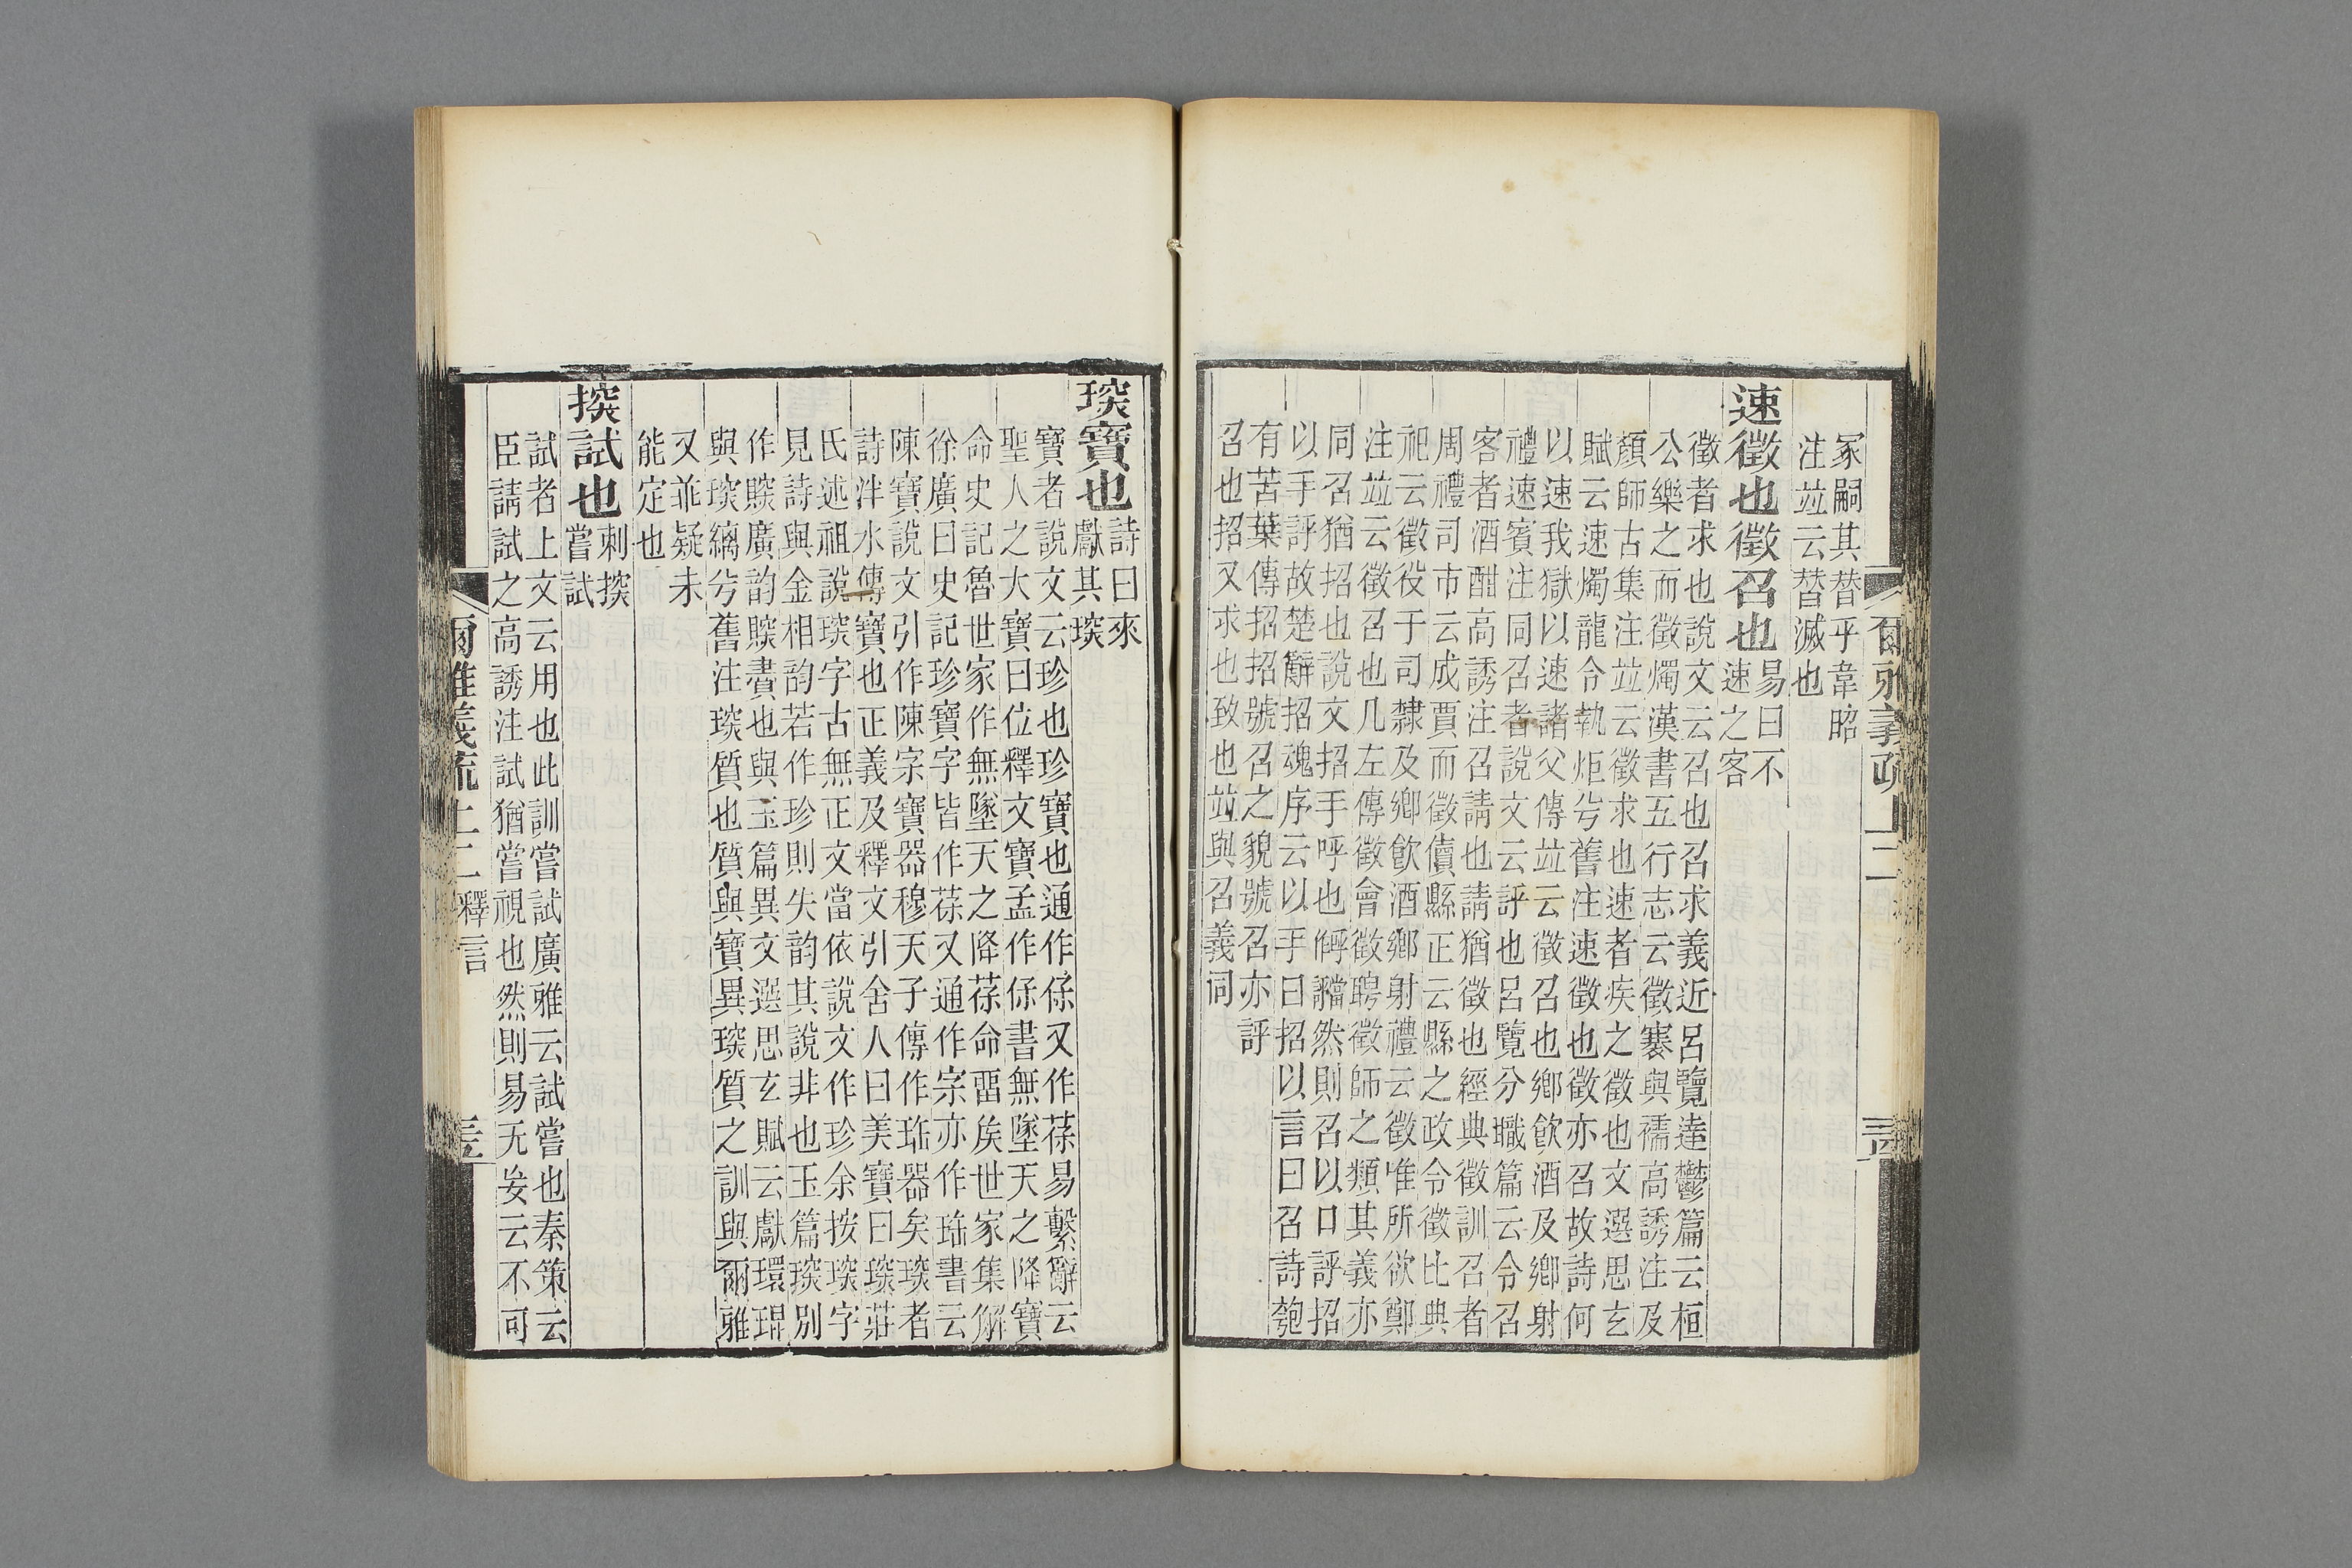 冢嗣其替乎韋昭
注竝云替滅也
速徵也徵召也
易曰不
速之客
徵者求也說文云召也召求義近呂覽達鬱篇云桓
公樂之而徵燭漢書五行志云徵褰與襦高誘注及
顏師古集注竝云徵求也速者疾之徵也文選思玄
賦云速燭龍令執炬兮舊注速徵也徵亦召故詩何
以速我獄以速諸父傳竝云徵召也鄉飲酒及鄉射
禮速賓注同召者說文云評也呂覽分職篇云令召
客者酒酣高誘注召請也請猶徵也經典徵訓召者
周禮司市云成賈而徵儥縣正云縣之政令徵比典
祀云徵役于司隸及鄉飲酒鄉射禮云徵唯所欲鄭
注竝云徵召也凡左傳徵會徵聘徵師之類其義亦
同召猶招也說文招手呼也然則召以口評招
以手評故楚辭招魂序云以手曰招以言曰召詩匏
有苦葉傳招招號召之貌號召亦評
召也招又求也致也竝與召義同
爾雅義疏上二
琛寶也
詩曰來
獻其琛
寶者說文云珍也珍寶也通作保又作葆易繫辭云
聖人之大寶曰位釋文寶孟作保書無墜天之降寶
命史記魯世家作無墜天之降葆命畱矦世家集解
徐廣曰史記珍寶字皆作葆又通作宲亦作珤書云
陳寶說文引作陳宲寶器穆天子傳作珤器矣琛者
詩泮水傳寶也正義及釋文引舍人曰美寶曰琛莊
氏述祖說琛字古無正文當依說文作珍余按琛字
見詩與金相韵若作珍則失韵其說非也玉篇琛別
作賝廣韵賝賮也與玉篇異文選思玄賦云獻環琨
與琛縭兮舊注琛質也質與寶異琛質之訓與爾雅
又乖疑未
能定也
探試也
刺探
嘗試
試者上文云用也此訓嘗試廣雅云試嘗也秦策云
臣請試之高誘注試猶嘗視也然則易无妄云不可
爾雅義疏上二 釋言